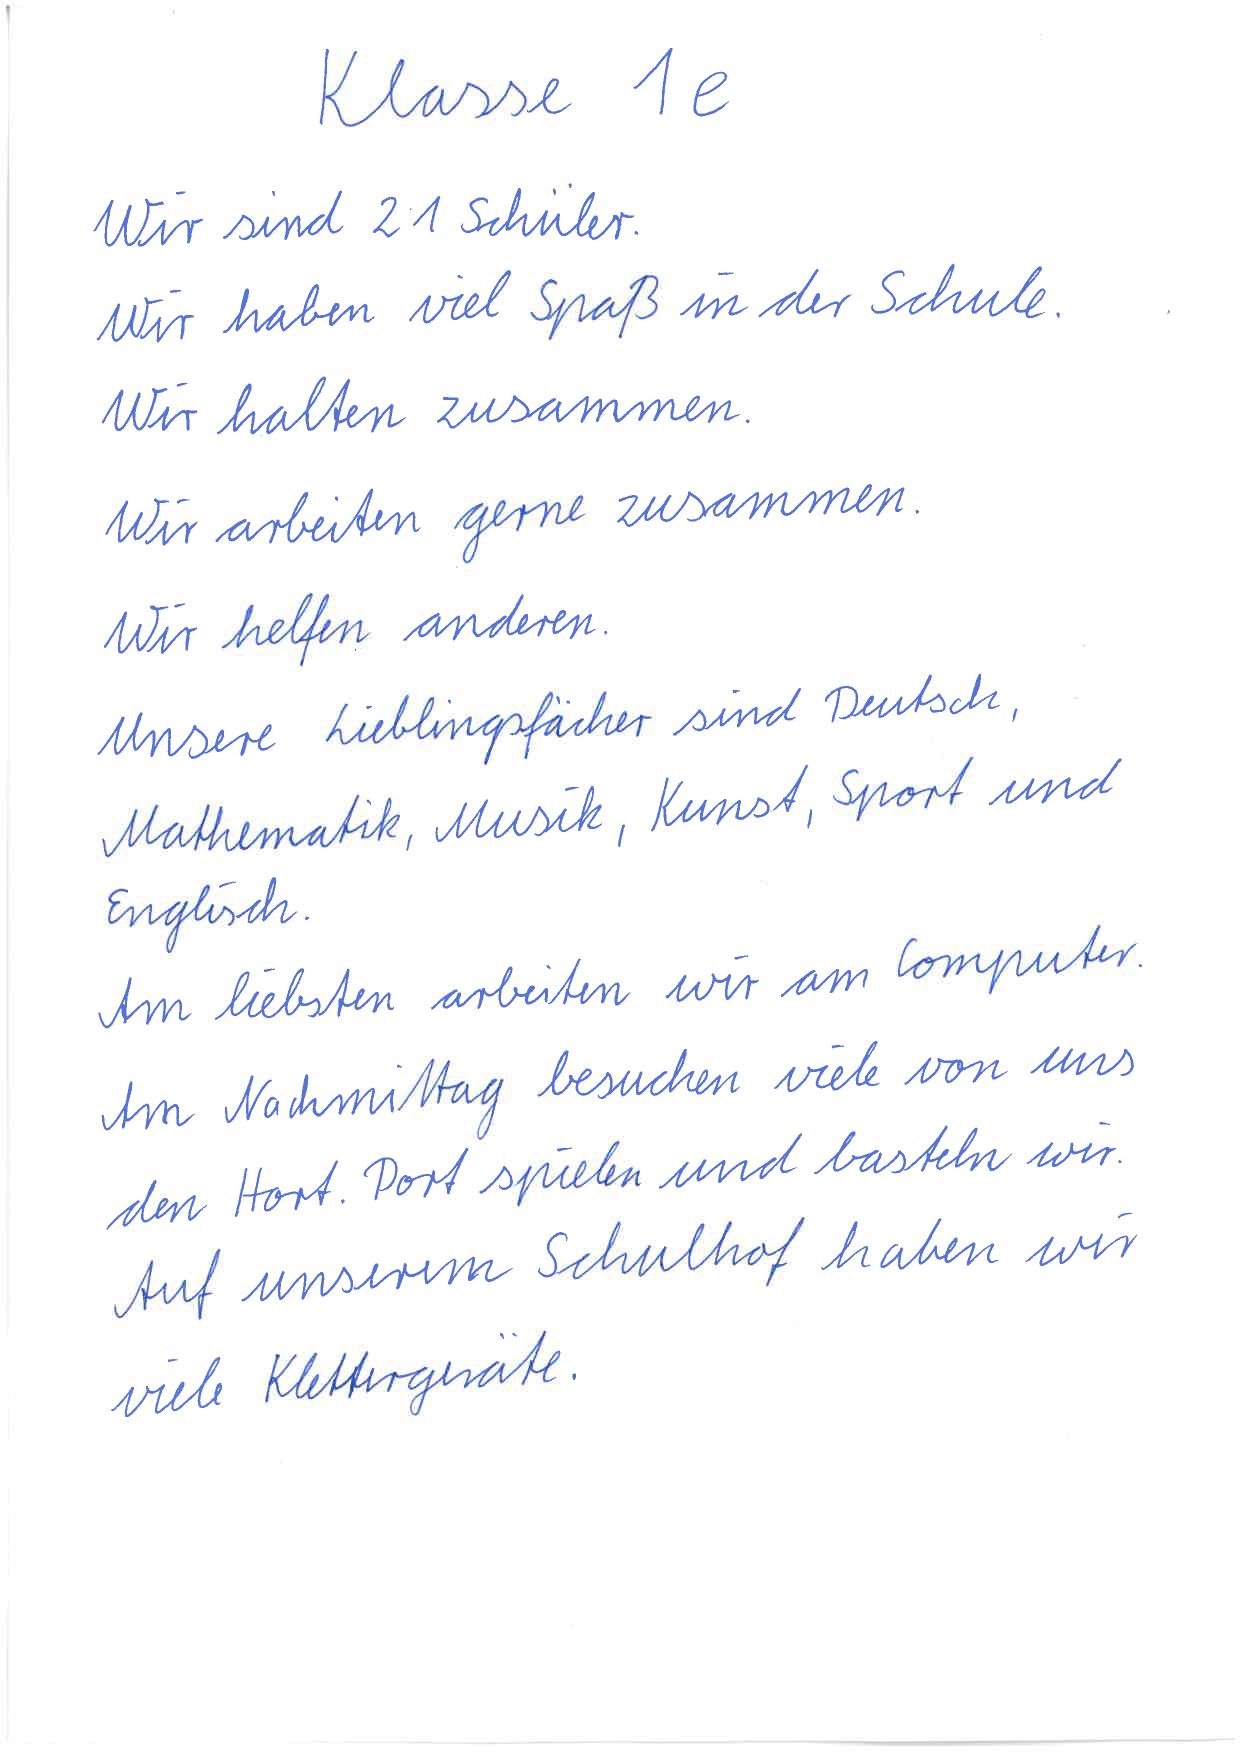 Klasse 1e
Wir sind 21 Schüler.
Wir haben viel Spaß in der Schule.
Wir halten zusammen.
Wir arbeiten gerne zusammen.
Wir helfen anderen.
Unsere Lieblingsfächer sind Deutsch,
Mathematik, Musik, Kunst, Sport und
Englisch.
Am liebsten arbeiten wir am Computer.
Am Nachmittag besuchen viele von uns
den Hort. Dort spielen und basteln wir.
Auf unserem Schulhof haben wir
viele Klettergeräte.